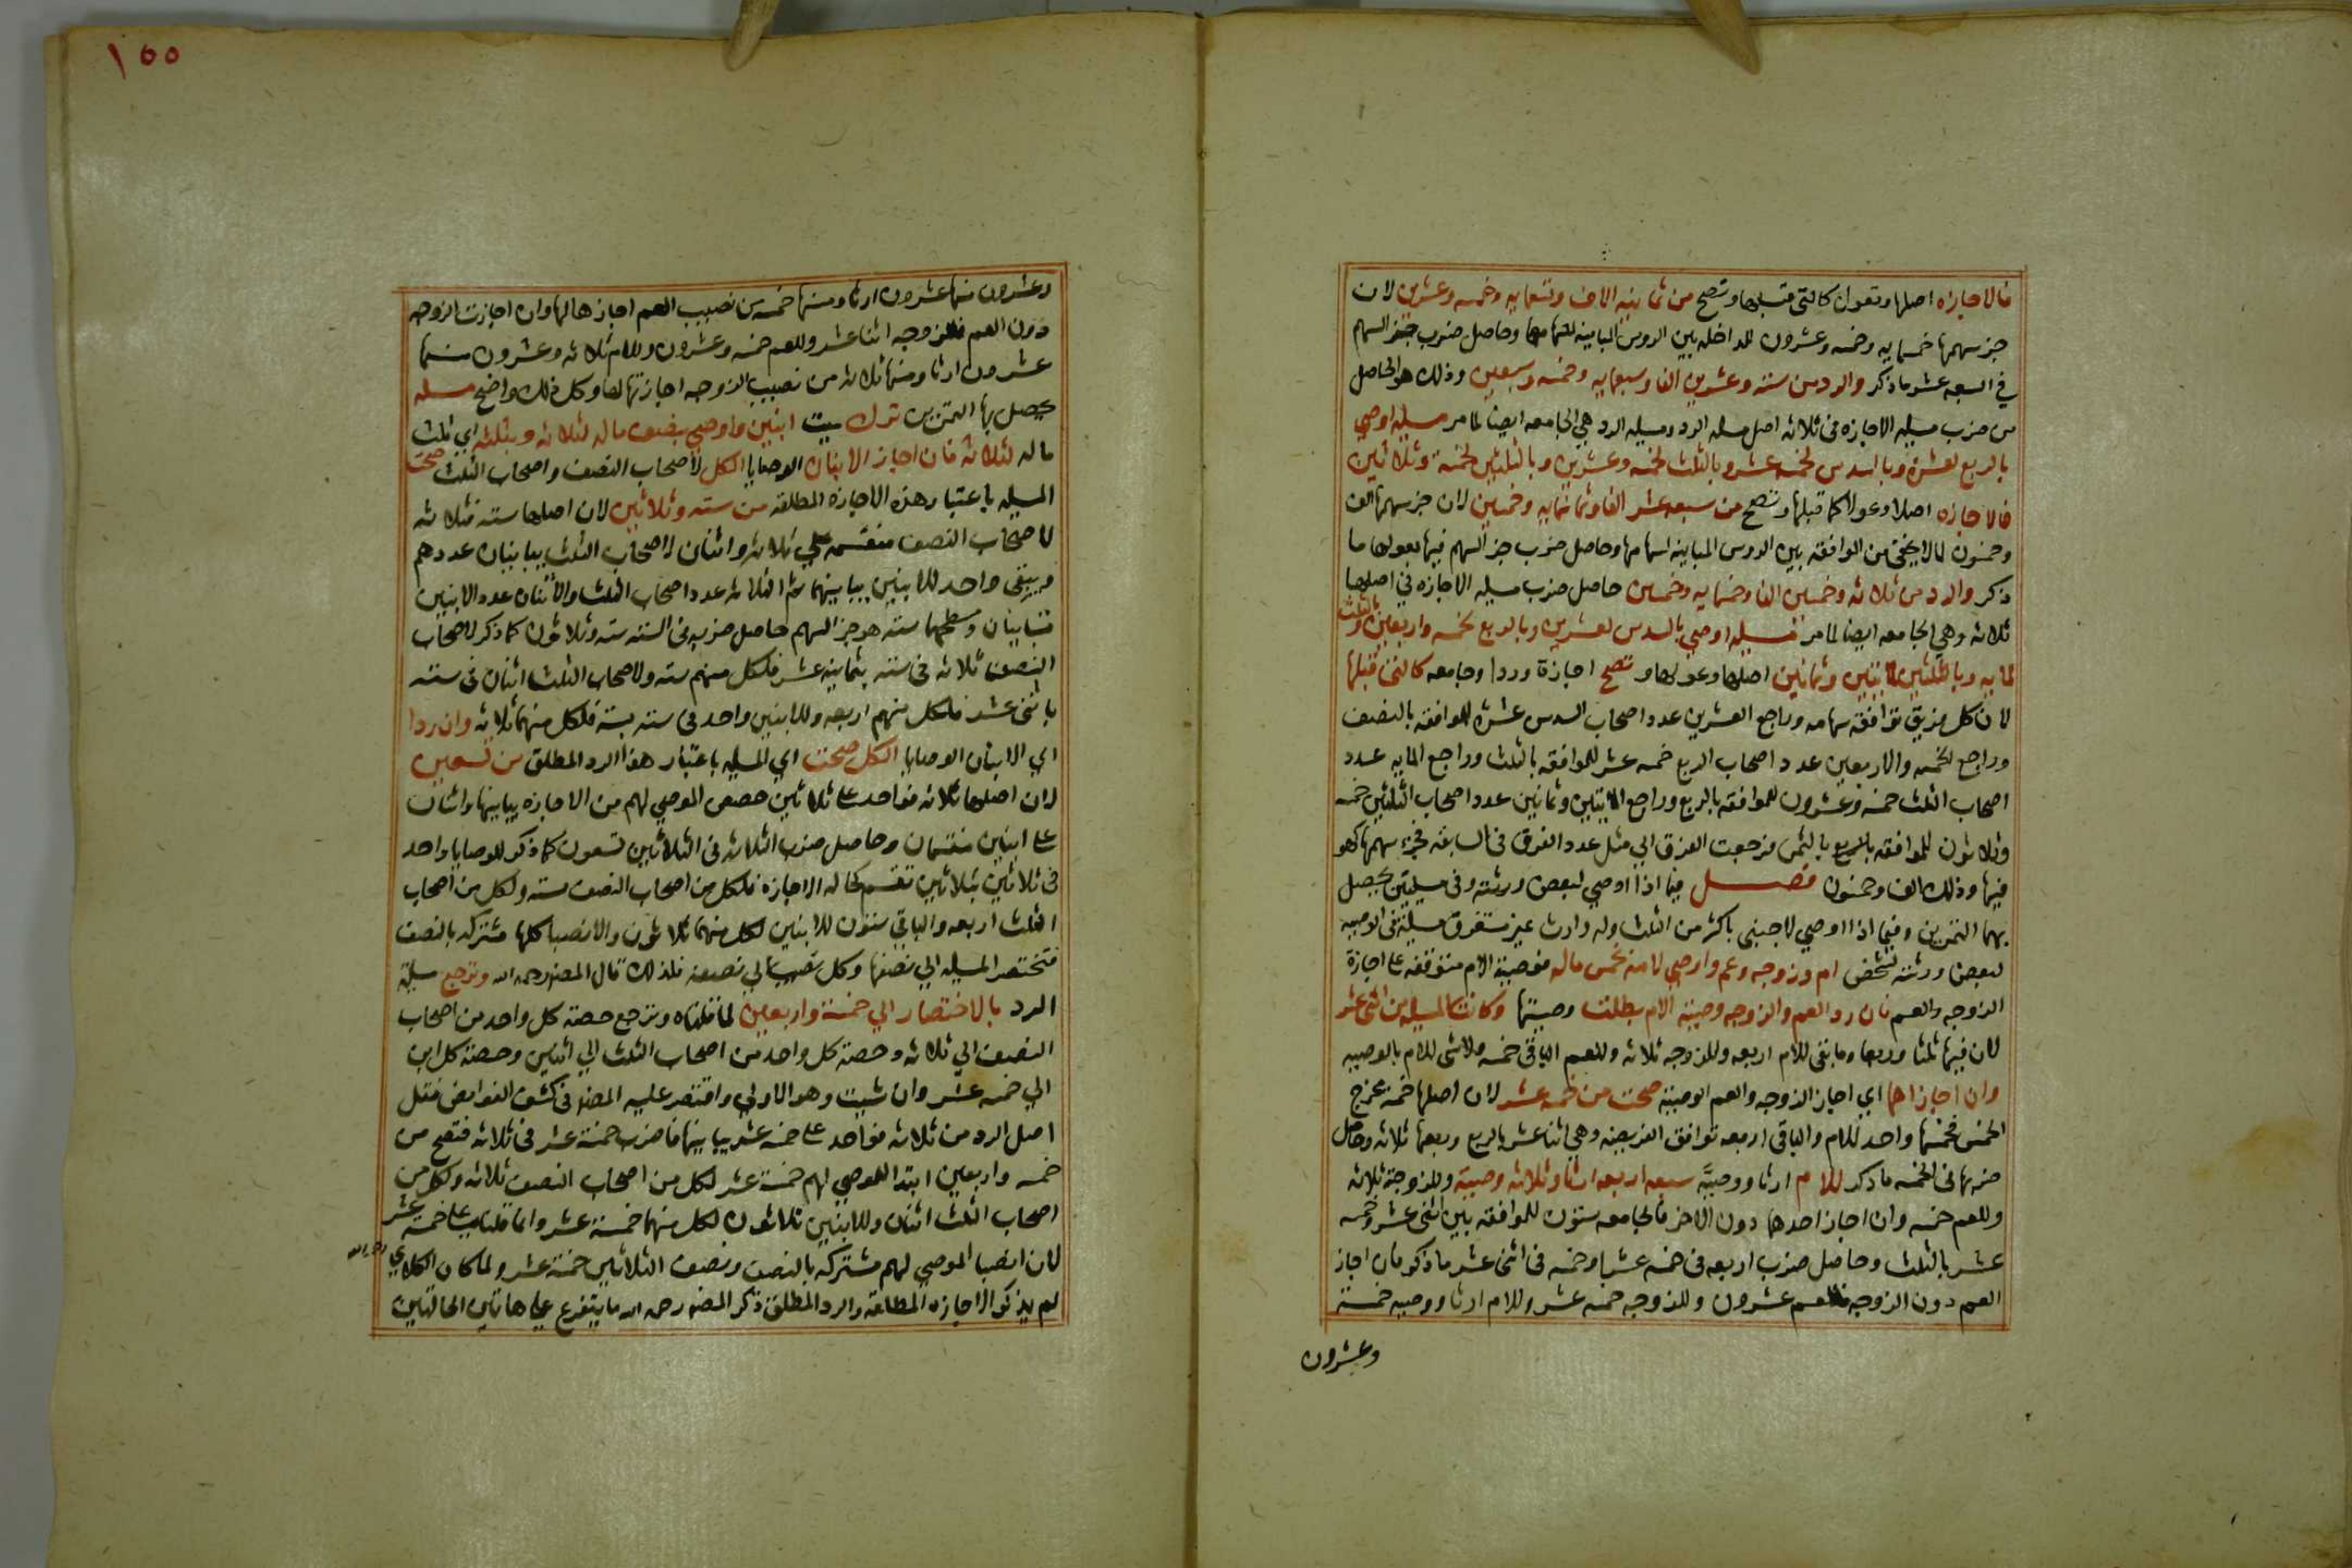 فالاجازه اصلها وتعول كالتى قبلها وتصح من ثمانيه الاف وتسعمايه وخمسه وعشرين لان
جز سهمها خمسمايه وخمسه وعشرون للمداخله بين الروس المباينه لسهامها وحاصل ضرب جز السهم
في السبعه عشر ما ذكر والرد من سته وعشرين الفا وسبعمايه وخمسه وسبعين وذلك هو الحاصل
من ضرب مسيله الاجازه فى ثلاثه اصل مسله الرد ومسيله الرد هي الجامعه ايضا لما مر مسيله اوصي
بالربع لعشره وبالسدس لخمسه عشر وبالثلث لخمسه وعشرين وبالثلثين لخمسة وثلاثين
فالاجازه اصلا وعولا كما قبلها وتصح من سبعه عشر الفا وثمانمايه وخمسين لان جز سهمها الف
وخمسون لما لا يخفى من الموافقه بين الروس المباينه لسهامها وحاصل ضرب جز السهم فيها بعولها ما
ذكر والرد من ثلاثه وخمسين الفا وخمسمايه وخمسين حاصل ضرب مسيله الاجازه في اصلها
ثلاثه وهي الجامعه ايضا لما مر مسيله اوصي بالسدس لعشرين وبالربع لخمسه واربعين وبالثلث
لمايه وبالثلثين لمايتين وثمانين اصلها وعولها وتصح اجازة وردا وجامعه كالتى قبلها
لان كل فريق توافقه سهامه وراجع العشرين عدد اصحاب السدس عشره للموافقه بالنصف
وراجع الخمسه والاربعين عدد اصحاب الربع خمسه عشر للموافقه بالثلث وراجع المايه عدد
اصحاب الثلث خمسه وعشرون للموافقه بالربع وراجع المايتين وثمانين عدد اصحاب الثلثين خمسه
وثلاثون للموافقه بالثمن فرجعت الفرق الي مثل عدد الفرق فى السابقه فجزء سهمها كهو
فيها وذلك الف وخمسون فصل فيما اذا اوصي لبعض ورثته وفى مسيلتين يحصل
بهما التمرين وفيما اذا اوصي لاجنبى باكثر من الثلث وله وارث غير مستغرق مسيلة فى الوصيه
لبعض ورثته لشخص ام وزوجه وعم واوصي لامه بخمس ماله فوصيته الام متوقفه على اجازة
الزوجه والعم فان رد العم والزوجه وصية الام بطلت وصيتها وكانت المسيله من اثنى عشر
لان فيها ثلثا وربعا وما بقى للام اربعه وللزوجه ثلاثه وللعم الباقى خمسه ولا شى للام بالوصيه
وان اجازاها اي اجاز الزوجه والعم الوصيه صحت من خمسه عشر لان اصلها خمسه مخرج
الخمس فخمسها واحد للام والباقى اربعه توافق الفريضه وهي اثنا عشر بالربع وربعها ثلاثه وحاصل
ضربها فى الخمسه ما ذكر للام ارثا ووصيةً سبعه اربعه ارثا وثلاثه وصيتة وللزوجة ثلاثه
وللعم خمسه وان اجاز احدهما دون الاخر فالجامعه ستون للموافقه بين اثنى عشر وخمسه
عشر بالثلث وحاصل ضرب اربعه فى خمسه عشر او خمسه فى اثنى عشر ما ذكر فان اجاز
العم دون الزوجه فللعم عشرون وللزوجه خمسه عشر وللام ارثا ووصيه خمسة
وعشرون
١٥٥
وعشرون منها عشرون ارثا ومنها خمسه من نصيب العم اجازها لها وان اجازت الزوجه
دون العم فللزوجه اثنا عشر وللعم خمسه وعشرون وللام ثلاثه وعشرون منها
عشرون ارثا ومنها ثلاثه من نصيب الزوجه اجازتها لها وكل ذلك واضح مسله
يحصل بها التمرين ترك ميت ابنين واوصي بنصف ماله لثلاثه وبثلثه اي ثلث
ماله لثلاثه فان اجاز الابنان الوصايا الكل لاصحاب النصف واصحاب الثلث صحت
المسيله باعتبار هذه الاجازه المطلقه من سته وثلاثين لان اصلها سته فثلاثه
لاصحاب النصف منقسمه علي ثلاثه واثنان لاصحاب الثلث يباينان عددهم
ويبقى واحد للابنين يباينهما ثم الثلاثه عدد اصحاب الثلث والاثنان عدد الابنين
متباينان ومسطحهما سته هو جز السهم حاصل ضربه فى السته سته وثلاثون كما ذكر لاصحاب
النصف ثلاثه فى سته بثمانيه عشر فلكل منهم سته ولاصحاب الثلث اثنان فى سته
باثنى عشر فلكل منهم اربعه وللابنين واحد فى سته بسته فلكل منهما ثلاثه وان ردا
اي الابنان الوصايا الكل صحت اي المسيله باعتبار هذا الرد المطلق من تسعين
لان اصلها ثلاثه فواحد على ثلاثين حصص الموصي لهم من الاجازه يباينها واثنان
على ابنين منقسمان وحاصل ضرب الثلاثه فى الثلاثين تسعون كما ذكر للوصايا واحد
فى ثلاثين بثلاثين تقسم كحاله الاجازه فلكل من اصحاب النصف سته ولكل من اصحاب
الثلث اربعه والباقي ستون للابنين لكل منهما ثلاثون والانصبا كلها مشتركه بالنصف
فتختصر المسيله الي نصفها وكل نصيب الي نصفه فلذلك قال المصنف رحمه الله وترجع مسيلة
الرد بالاختصار الي خمسة واربعين لما قلناه وترجع حصته كل واحد من اصحاب
النصف الي ثلاثه وحصة كل واحد من اصحاب الثلث الي اثنين وحصة كل ابن
الي خمسه عشر وان شيت وهو الاولي واقتصر عليه المصنف فى كشف الغوامض فقل
اصل الرد من ثلاثه فواحد على خمسه عشر يباينها فاضرب خمسة عشر فى ثلاثه فتصح من
خمسه واربعين ابتدا للموصي لهم خمسة عشر لكل من اصحاب النصف ثلاثه ولكل من
اصحاب الثلث اثنان وللابنين ثلاثون لكل منهما خمسة عشر وانما قلنا على خمسة عشر
لان انصبا الموصي لهم مشتركه بالنصف ونصف الثلاثين خمسة عشر ولما كان الكلاي رحمه الله
لم يذكر الا الاجازه المطلقه والرد المطلق ذكر المصنف رحمه الله ما يتفرع علي هاتين الحالتين